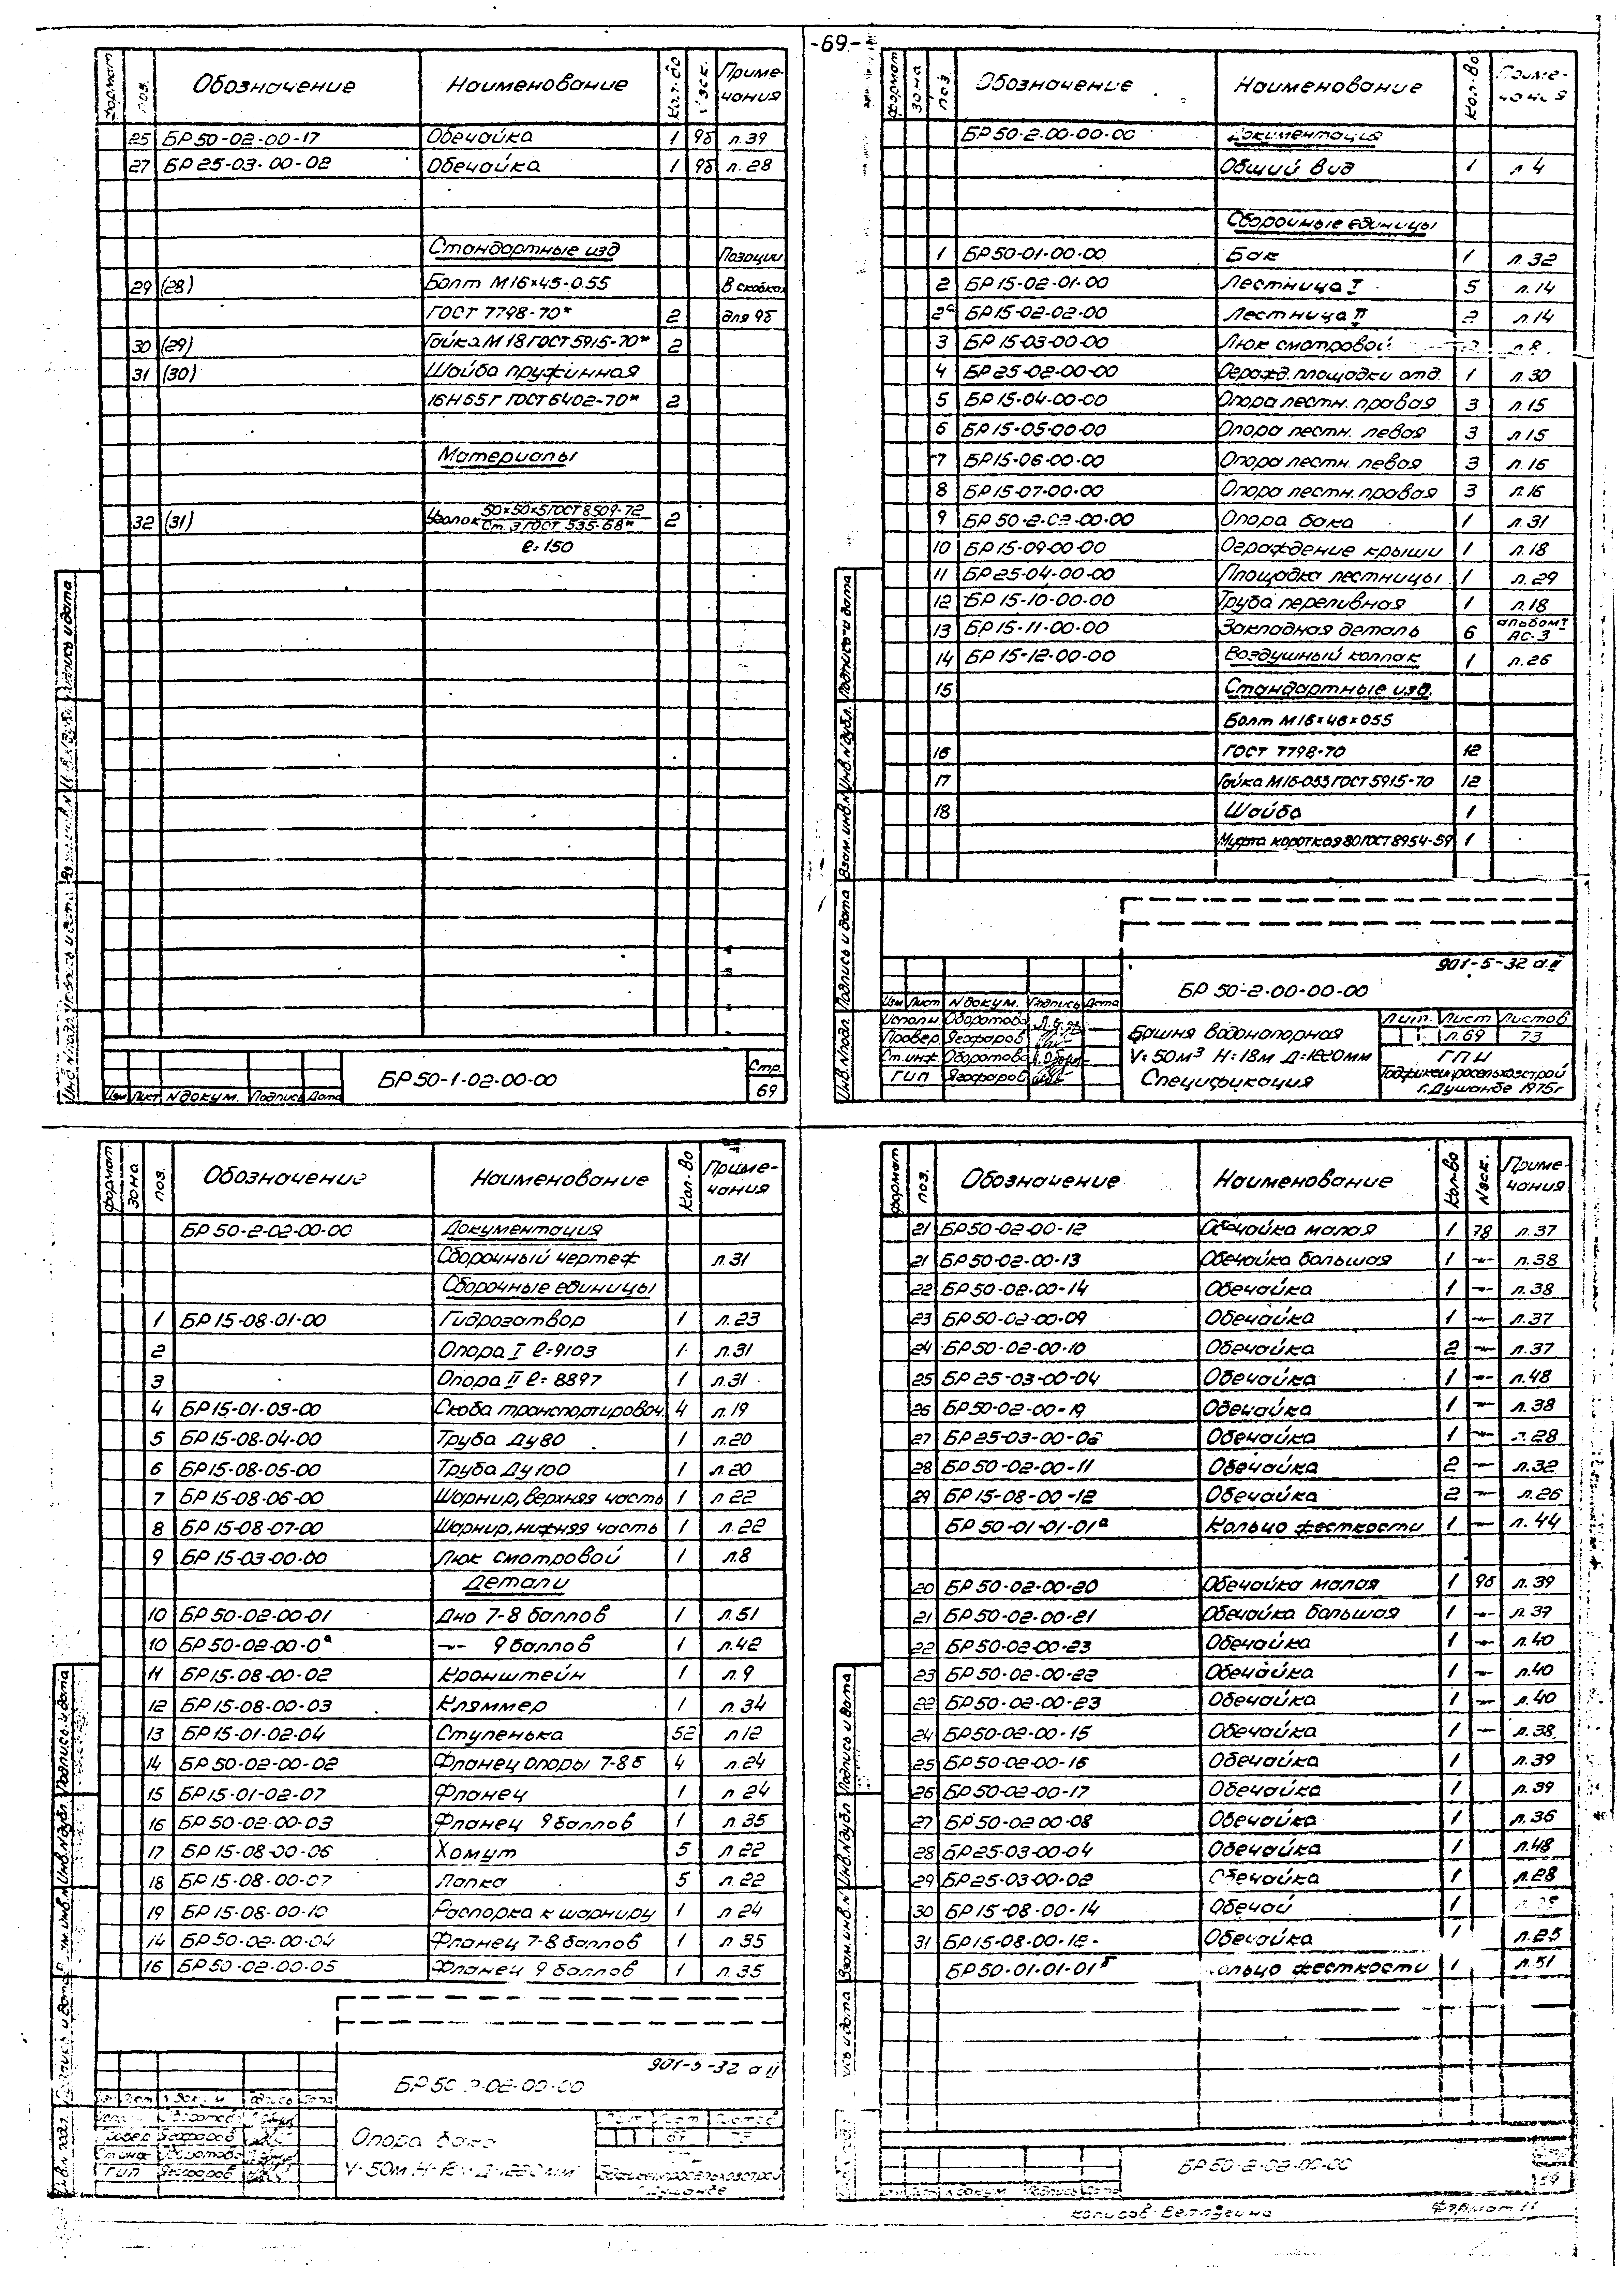 -69-
формат поз. Обозначение Наименование Кол-во Приме-
чания
25 БР 50-02-00-17 Обечайка 1 9б л.39
27 БР 25-03-00-02 Обечайка 1 9б л.28
Стандартные изд Позиции
29 (28) Болт М16×45-0.55 в скобках
ГОСТ 7798-70* 2 для 9б
30 (29) Гайка М18 ГОСТ 5915-70* 2
31 (30) Шайба пружинная
16Н65Г ГОСТ 6402-70* 2
Материалы
32 (31) Уголок 50×50×5 ГОСТ 8509-72 2
Ст. 3 ГОСТ 535-68*
ℓ=150
Изм Лист N докум. Подпись Дата
БР 50-1-02-00-00
Стр.
69
формат зона поз. Обозначение Наименование Кол-во Приме-
чания
БР 50-2-00-00-00 Документация
Общий вид 1 л 4
Сборочные единицы
1 БР 50-01-00-00 Бак 1 л.32
2 БР 15-02-01-00 Лестница I 5 л.14
2а БР 15-02-02-00 Лестница II 2 л.14
3 БР 15-03-00-00 Люк смотровой л.8
4 БР 25-02-00-00 Огражд. площадки отд. 1 л.30
5 БР 15-04-00-00 Опора лестн. правая 3 л.15
6 БР 15-05-00-00 Опора лестн. левая 3 л.15
7 БР 15-06-00-00 Опора лестн. левая 3 л.16
8 БР 15-07-00-00 Опора лестн. правая 3 л.16
9 БР 50-2-02-00-00 Опора бака 1 л.31
10 БР 15-09-00-00 Ограждение крыши 1 л.18
11 БР 25-04-00-00 Площадка лестницы 1 л.29
12 БР 15-10-00-00 Труба переливная 1 л.18
13 БР 15-11-00-00 Закладная деталь 6 альбом I
АС-3
14 БР 15-12-00-00 Воздушный колпак 1 л.26
15 Стандартные изд.
Болт М16×46×055
16 ГОСТ 7798-70 12
17 Гайка М16-055 ГОСТ 5915-70 12
18 Шайба 1
Муфта короткая 80 ГОСТ 8954-59 1
901-5-32 а.II
БР 50-2-00-00-00
Изм Лист N докум. Подпись Дата
Исполн. Оборотова
Провер. Ягофаров
Ст.инж. Оборотова
ГИП Ягофаров
Башня водонопорная
V=50м³ Н=18м Д=1220мм
Спецификация
Лит. Лист Листов
л.69 73
ГПИ
Таджикгипросельхозстрой
г.Душанбе 1975г
Инв.Nподл. Подпись и дата Взам.инв.N Инв.Nдубл. Подпись и дата
формат зона поз. Обозначение Наименование Кол-во Приме-
чания
БР 50-2-02-00-00 Документация
Сборочный чертеж л.31
Сборочные единицы
1 БР 15-08-01-00 Гидрозатвор 1 л.23
2 Опора I ℓ=9103 1 л.31
3 Опора II ℓ=8897 1 л.31
4 БР 15-01-03-00 Скоба транспортировоч. 4 л.19
5 БР 15-08-04-00 Труба Ду80 1 л.20
6 БР 15-08-05-00 Труба Ду100 1 л.20
7 БР 15-08-06-00 Шарнир, верхняя часть 1 л 22
8 БР 15-08-07-00 Шарнир, нижняя часть 1 л.22
9 БР 15-03-00-00 Люк смотровой 1 л.8
Детали
10 БР 50-02-00-01 Дно 7-8 баллов 1 л.51
10 БР 50-02-00-0а —"— 9 баллов 1 л.42
11 БР 15-08-00-02 Кронштейн 1 л.9
12 БР 15-08-00-03 Кляммер 1 л.34
13 БР 15-01-02-04 Ступенька 52 л 12
14 БР 50-02-00-02 Фланец опоры 7-8 б 4 л.24
15 БР 15-01-02-07 Фланец 1 л 24
16 БР 50-02-00-03 Фланец 9 баллов 1 л 35
17 БР 15-08-00-06 Хомут 5 л.22
18 БР 15-08-00-07 Лапка 5 л.22
19 БР 15-08-00-10 Распорка к шарниру 1 л 24
14 БР 50-02-00-04 Фланец 7-8 баллов 1 л 35
16 БР 50-02-00-05 Фланец 9 баллов 1 л.35
901-5-32 а II
БР 50 2-02-00-00
Опора бака
формат поз. Обозначение Наименование Кол-во Nэск. Приме-
чания
21 БР 50-02-00-12 Обечайка малая 1 78 л.37
21 БР 50-02-00-13 Обечайка большая 1 —"— л.38
22 БР 50-02-00-14 Обечайка 1 —"— л.38
23 БР 50-02-00-09 Обечайка 1 —"— л.37
24 БР 50-02-00-10 Обечайка 2 —"— л.37
25 БР 25-03-00-04 Обечайка 1 —"— л.48
26 БР 50-02-00-19 Обечайка 1 —"— л.38
27 БР 25-03-00-02 Обечайка 1 —"— л.28
28 БР 50-02-00-11 Обечайка 2 —"— л.32
29 БР 15-08-00-12 Обечайка 2 —"— л.26
БР 50-01-01-01а Кольцо жесткости 1 —"— л.44
20 БР 50-02-00-20 Обечайка малая 1 9б л.39
21 БР 50-02-00-21 Обечайка большая 1 —"— л.39
22 БР 50-02-00-23 Обечайка 1 —"— л.40
23 БР 50-02-00-22 Обечайка 1 —"— л.40
22 БР 50-02-00-23 Обечайка 1 —"— л.40
24 БР 50-02-00-15 Обечайка 1 —"— л.38
25 БР 50-02-00-16 Обечайка 1 л.39
26 БР 50-02-00-17 Обечайка 1 л.39
27 БР 50-02 00-08 Обечайка 1 л.36
28 БР 25-03-00-04 Обечайка 1 л.48
29 БР 25-03-00-02 Обечайка 1 л.28
30 БР 15-08-00-14 Обечай 1
31 БР 15-08-00-12- Обечайка 1 л.25
БР 50-01-01-01б кольцо жесткости 1 л.51
БР 50-2-02-00-00
Копиров. Ветлугина Формат 11